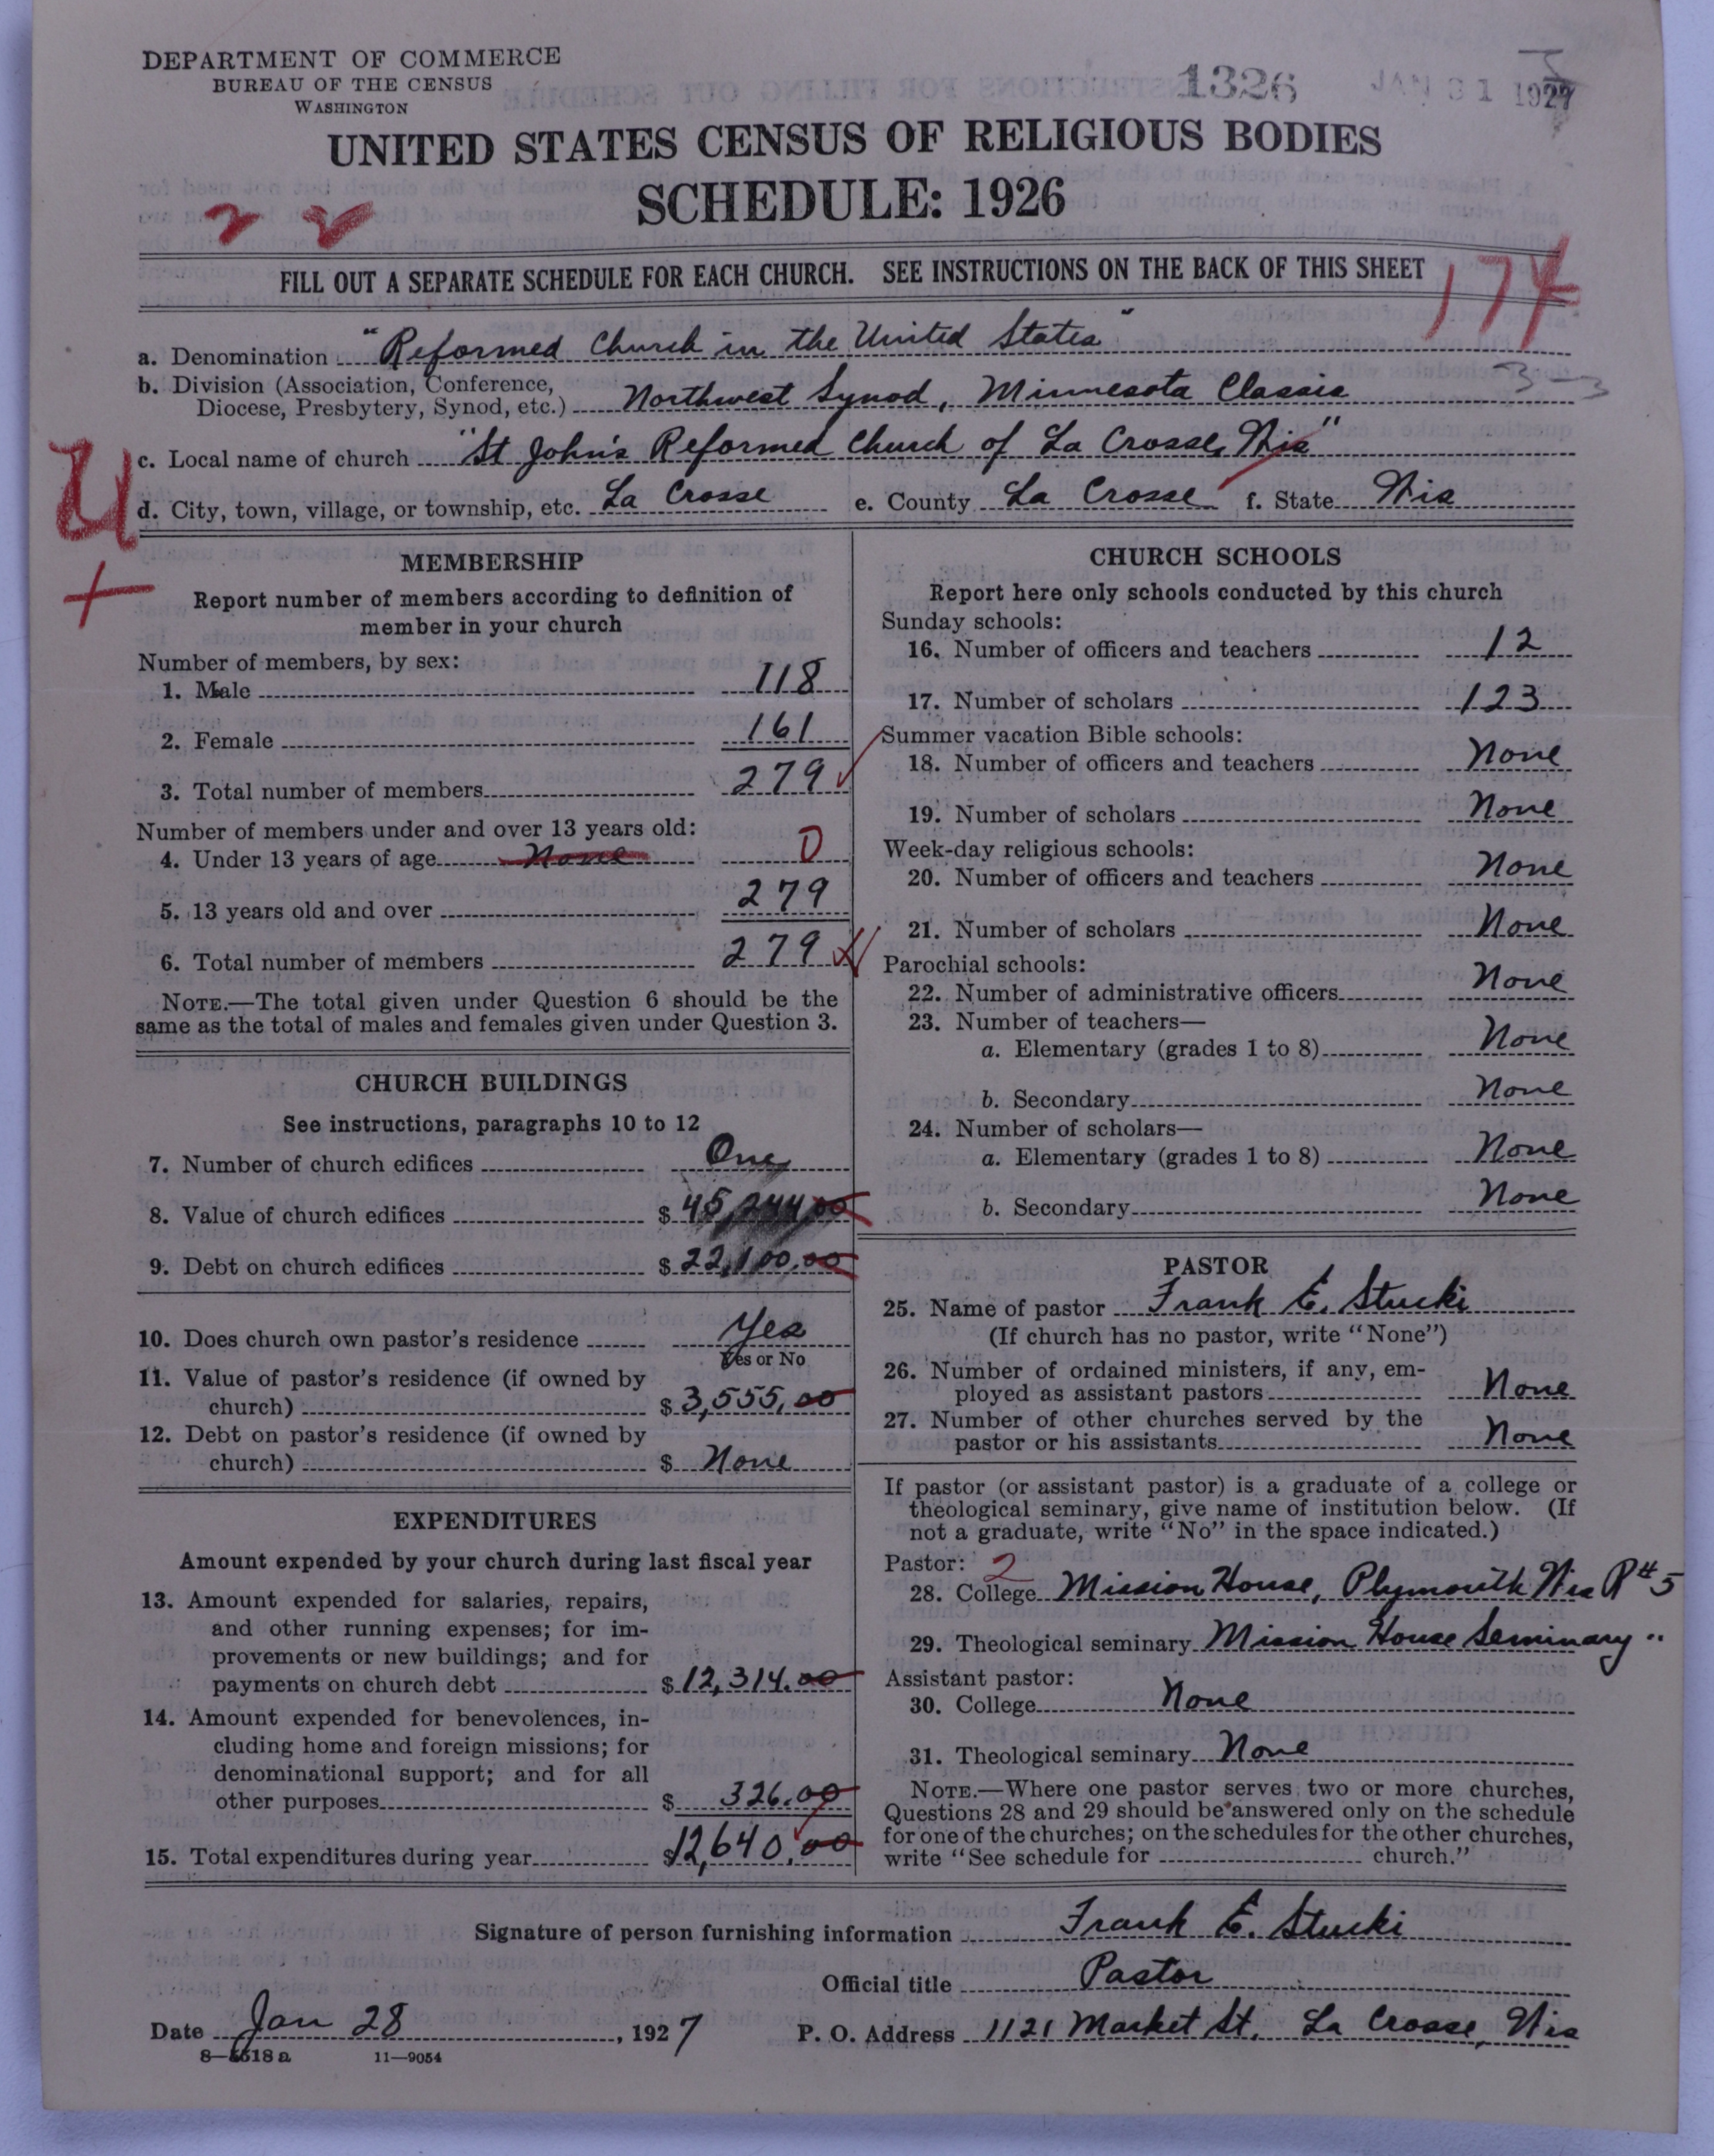 DEPARTMENT OF COMMERCE
BUREAU OF THE CENSUS
WASHINGTON
1326 JAN 31 1927
UNITED STATES CENSUS OF RELIGIOUS BODIES
SCHEDULE: 1926
FILL OUT A SEPARATE SCHEDULE FOR EACH CHURCH. SEE INSTRUCTIONS ON THE BACK OF THIS SHEET
174
a. Denomination "Reformed Church in the United States"
b. Division (Association, Conference,
Diocese, Presbytery, Synod, etc.) Northwest Synod, Minnesota Classis
3-3
c. Local name of church "St John's Reformed Church of La Crosse, Wis"
d. City, town, village, or township, etc. La Crosse e. County La Crosse f. State Wis
MEMBERSHIP
Report number of members according to definition of
member in your church
Number of members, by sex:
1. Male 118
2. Female 161
3. Total number of members 279
Number of members under and over 13 years old:
4. Under 13 years of age None 0
5. 13 years old and over 279
6. Total number of members 279
NOTE.—The total given under Question 6 should be the
same as the total of males and females given under Question 3.
CHURCH BUILDINGS
See instructions, paragraphs 10 to 12
7. Number of church edifices One
8. Value of church edifices $ 45,244.00
9. Debt on church edifices $ 22,100.00
10. Does church own pastor's residence Yes
Yes or No
11. Value of pastor's residence (if owned by
church) $ 3,555.00
12. Debt on pastor's residence (if owned by
church) $ None
EXPENDITURES
Amount expended by your church during last fiscal year
13. Amount expended for salaries, repairs,
and other running expenses; for im-
provements or new buildings; and for
payments on church debt $ 12,314.00
14. Amount expended for benevolences, in-
cluding home and foreign missions; for
denominational support; and for all
other purposes $ 326.00
15. Total expenditures during year $12,640.00
CHURCH SCHOOLS
Report here only schools conducted by this church
Sunday schools:
16. Number of officers and teachers 12
17. Number of scholars 123
Summer vacation Bible schools:
18. Number of officers and teachers None
19. Number of scholars None
Week-day religious schools:
20. Number of officers and teachers None
21. Number of scholars None
Parochial schools:
22. Number of administrative officers None
23. Number of teachers—
a. Elementary (grades 1 to 8) None
b. Secondary None
24. Number of scholars—
a. Elementary (grades 1 to 8) None
b. Secondary None
PASTOR
25. Name of pastor Frank E. Stucki
(If church has no pastor, write "None")
26. Number of ordained ministers, if any, em-
ployed as assistant pastors None
27. Number of other churches served by the
pastor or his assistants None
If pastor (or assistant pastor) is a graduate of a college or
theological seminary, give name of institution below. (If
not a graduate, write "No" in the space indicated.)
Pastor: 2
28. College Mission House, Plymouth Wis R#5
29. Theological seminary Mission House Seminary "
Assistant pastor:
30. College None
31. Theological seminary None
NOTE.—Where one pastor serves two or more churches,
Questions 28 and 29 should be answered only on the schedule
for one of the churches; on the schedules for the other churches,
write "See schedule for church."
Signature of person furnishing information Frank E. Stucki
Official title Pastor
Date Jan 28, 1927 P. O. Address 1121 Market St. La Crosse, Wis
8—5518 a 11—9054